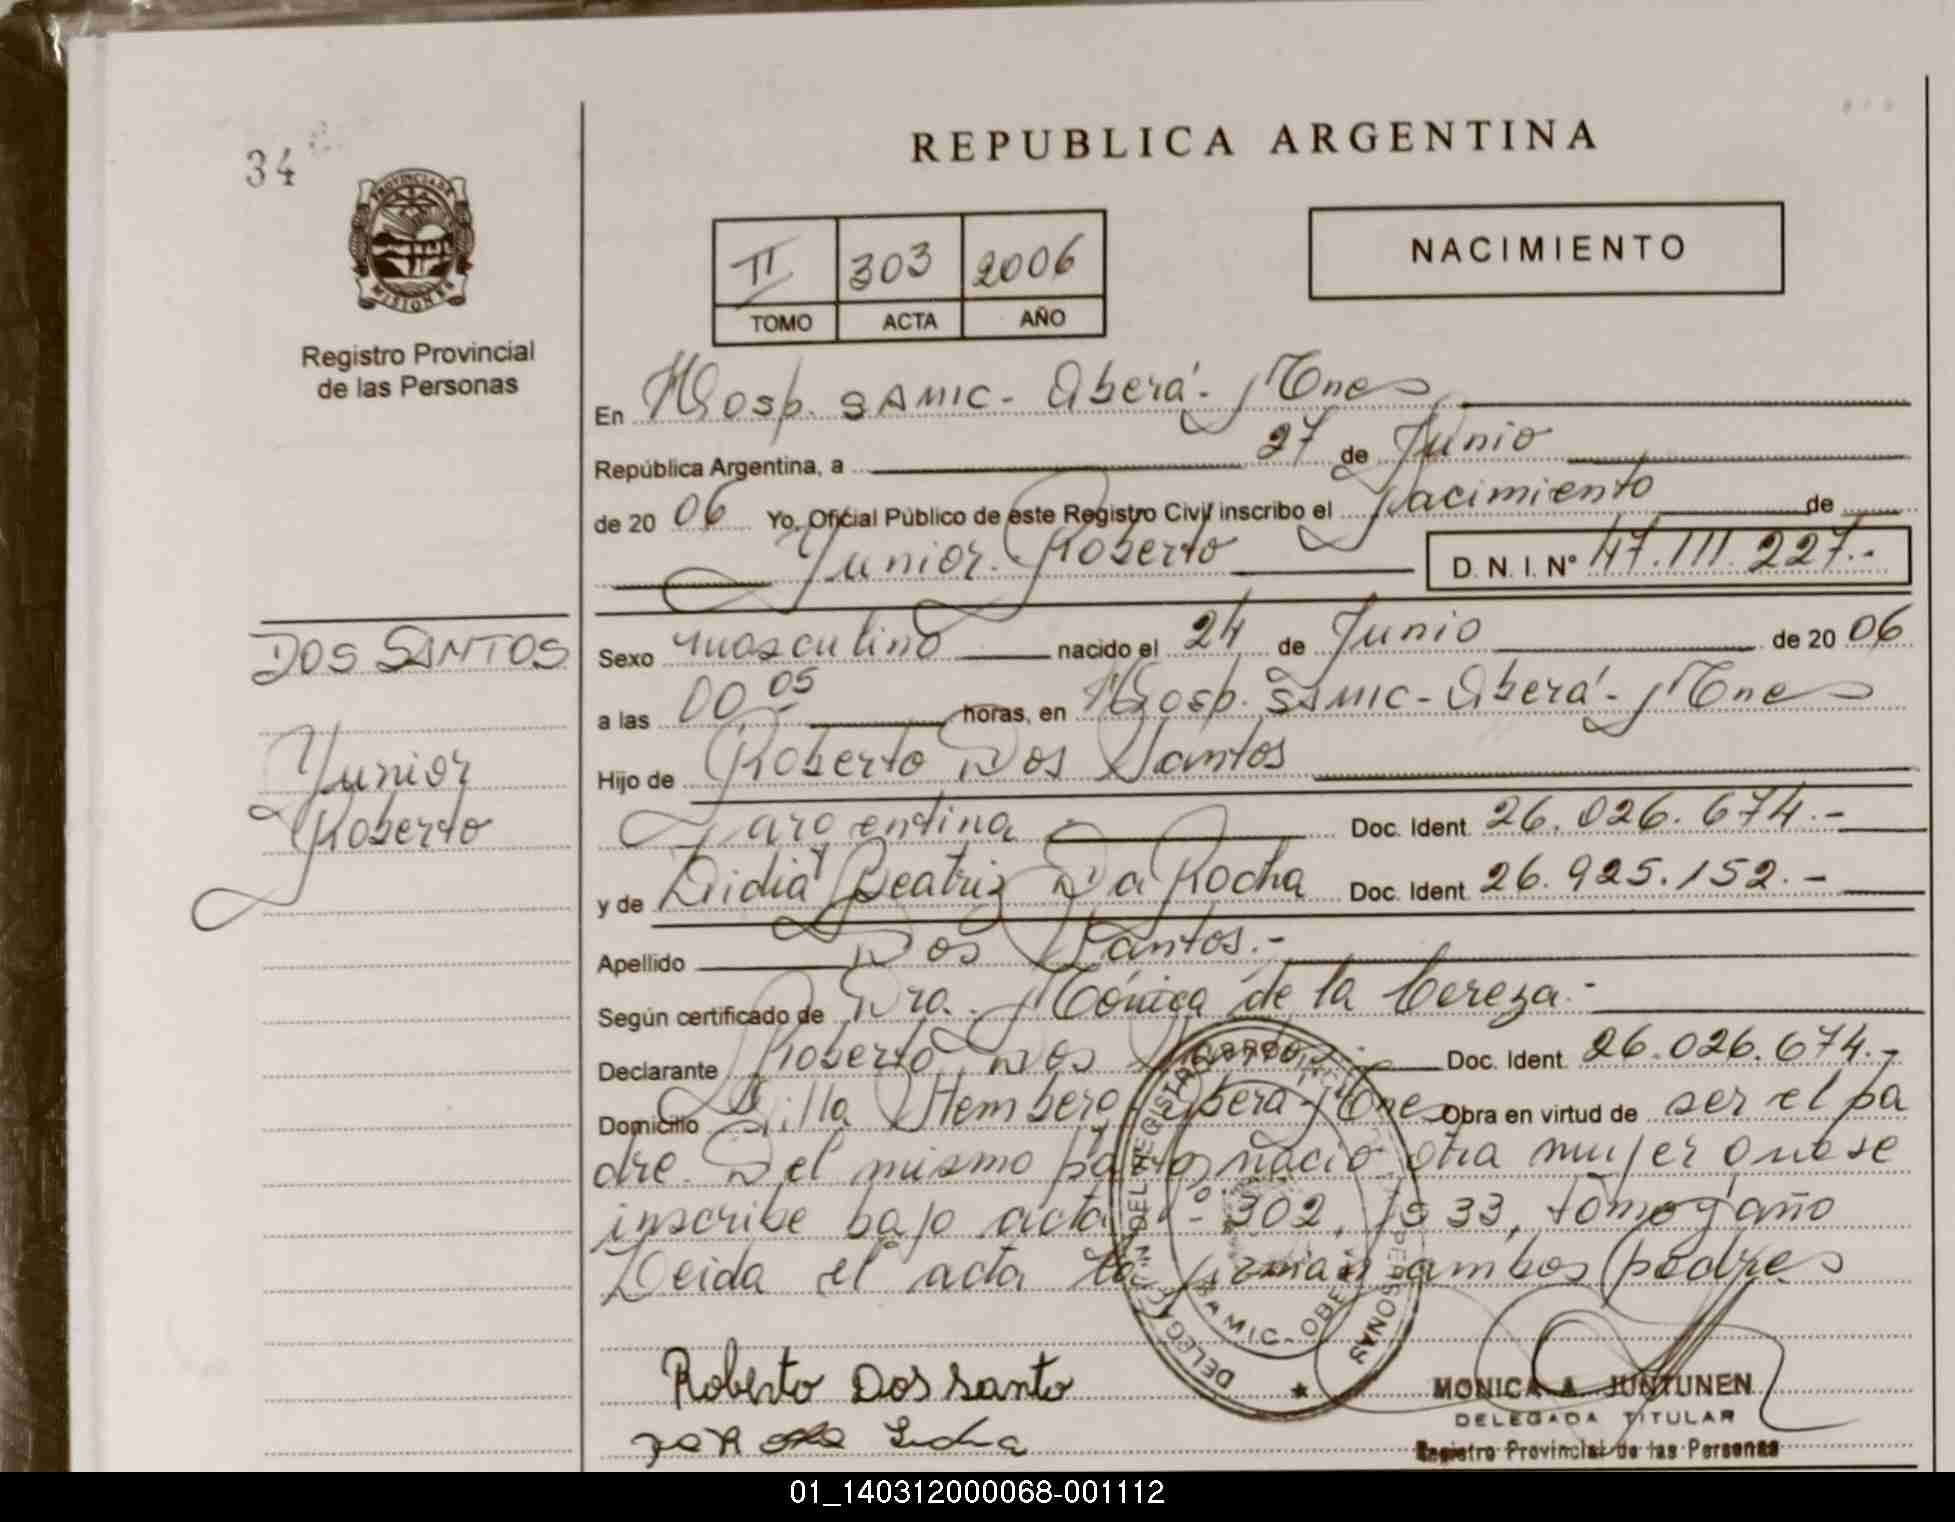 34
PROVINCIA DE
MISIONES
Registro Provincial
de las Personas
REPUBLICA ARGENTINA
II 303 2006
TOMO ACTA AÑO
NACIMIENTO
En Hosp. SAMIC - Oberá - Mnes
República Argentina, a 27 de Junio
de 20 06 Yo, Oficial Público de este Registro Civil inscribo el Nacimiento de
Junior Roberto D. N. I. Nº 47.111.227.-
DOS SANTOS
Junior
Roberto
Sexo masculino nacido el 24 de Junio de 20 06
a las 00 05 horas, en Hosp. SAMIC - Oberá - Mnes
Hijo de Roberto Dos Santos
argentina Doc. Ident 26.026.674.-
y de Lidia Beatriz Da Rocha Doc. Ident 26.925.152.-
Apellido Dos Santos.-
Según certificado de Dra. Mónica de la Cereza.-
Declarante Roberto Dos Santos.- Doc. Ident. 26.026.674.-
Domicilio Villa Stemberg, Oberá - Mnes Obra en virtud de ser el pa
dre. Del mismo parto nació otra mujer que se
inscribe bajo acta nº 302, fs 33, tomo y año
Leida el acta la firman ambos padres
DELEGACION DEL REGISTRO PROVINCIAL PERSONAS
SAMIC - OBERA
Roberto Dos santo
Lidia
MONICA A. JUNTUNEN
DELEGADA TITULAR
Registro Provincial de las Personas
01_140312000068-001112